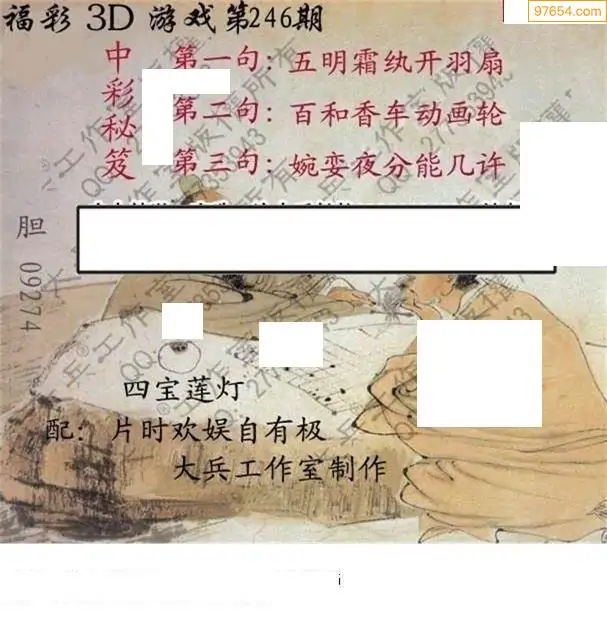 97654.com
福彩 3D 游戏第246期
中彩秘笈
第一句：五明霜纨开羽扇
第二句：百和香车动画轮
第三句：婉娈夜分能几许
胆 09274
四宝莲灯
配：片时欢娱自有极
大兵工作室制作
i